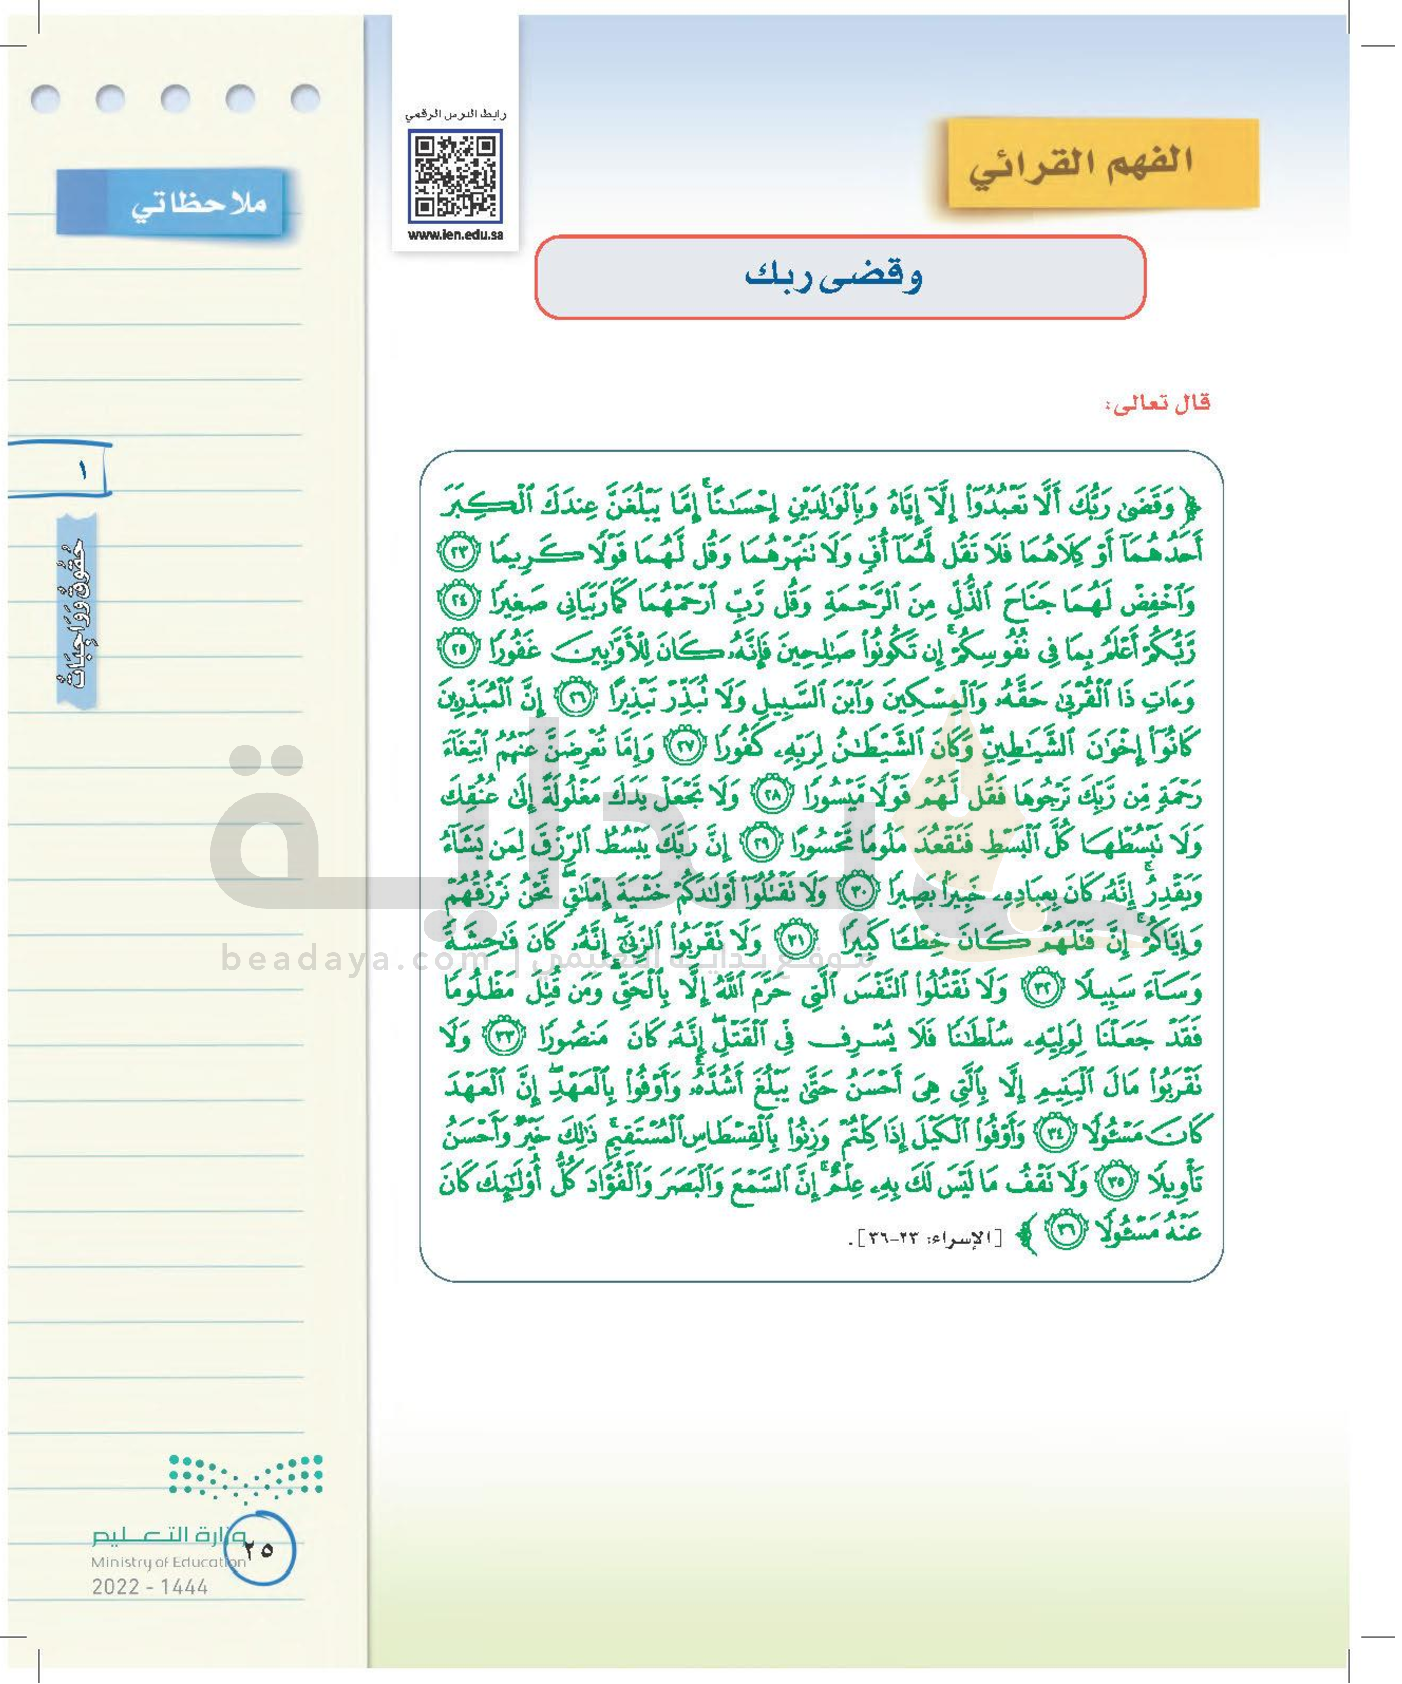 رابط الدرس الرقمي
www.ien.edu.sa
الفهم القرائي
ملاحظاتي
وقضى ربك
قال تعالى:
﴿ وَقَضَىٰ رَبُّكَ أَلَّا تَعْبُدُوٓا۟ إِلَّآ إِيَّاهُ وَبِٱلْوَٰلِدَيْنِ إِحْسَـٰنًا ۚ إِمَّا يَبْلُغَنَّ عِندَكَ ٱلْكِبَرَ
أَحَدُهُمَآ أَوْ كِلَاهُمَا فَلَا تَقُل لَّهُمَآ أُفٍّ وَلَا تَنْهَرْهُمَا وَقُل لَّهُمَا قَوْلًا كَرِيمًا ٢٣
وَٱخْفِضْ لَهُمَا جَنَاحَ ٱلذُّلِّ مِنَ ٱلرَّحْمَةِ وَقُل رَّبِّ ٱرْحَمْهُمَا كَمَا رَبَّيَانِى صَغِيرًا ٢٤
رَّبُّكُمْ أَعْلَمُ بِمَا فِى نُفُوسِكُمْ ۚ إِن تَكُونُوا۟ صَـٰلِحِينَ فَإِنَّهُۥ كَانَ لِلْأَوَّٰبِينَ غَفُورًا ٢٥
وَءَاتِ ذَا ٱلْقُرْبَىٰ حَقَّهُۥ وَٱلْمِسْكِينَ وَٱبْنَ ٱلسَّبِيلِ وَلَا تُبَذِّرْ تَبْذِيرًا ٢٦ إِنَّ ٱلْمُبَذِّرِينَ
كَانُوٓا۟ إِخْوَٰنَ ٱلشَّيَـٰطِينِ ۖ وَكَانَ ٱلشَّيْطَـٰنُ لِرَبِّهِۦ كَفُورًا ٢٧ وَإِمَّا تُعْرِضَنَّ عَنْهُمُ ٱبْتِغَآءَ
رَحْمَةٍ مِّن رَّبِّكَ تَرْجُوهَا فَقُل لَّهُمْ قَوْلًا مَّيْسُورًا ٢٨ وَلَا تَجْعَلْ يَدَكَ مَغْلُولَةً إِلَىٰ عُنُقِكَ
وَلَا تَبْسُطْهَا كُلَّ ٱلْبَسْطِ فَتَقْعُدَ مَلُومًا مَّحْسُورًا ٢٩ إِنَّ رَبَّكَ يَبْسُطُ ٱلرِّزْقَ لِمَن يَشَآءُ
وَيَقْدِرُ ۚ إِنَّهُۥ كَانَ بِعِبَادِهِۦ خَبِيرًۢا بَصِيرًا ٣٠ وَلَا تَقْتُلُوٓا۟ أَوْلَـٰدَكُمْ خَشْيَةَ إِمْلَـٰقٍ ۖ نَّحْنُ نَرْزُقُهُمْ
وَإِيَّاكُمْ ۚ إِنَّ قَتْلَهُمْ كَانَ خِطْـًٔا كَبِيرًا ٣١ وَلَا تَقْرَبُوا۟ ٱلزِّنَىٰٓ ۖ إِنَّهُۥ كَانَ فَـٰحِشَةً
وَسَآءَ سَبِيلًا ٣٢ وَلَا تَقْتُلُوا۟ ٱلنَّفْسَ ٱلَّتِى حَرَّمَ ٱللَّهُ إِلَّا بِٱلْحَقِّ ۗ وَمَن قُتِلَ مَظْلُومًا
فَقَدْ جَعَلْنَا لِوَلِيِّهِۦ سُلْطَـٰنًا فَلَا يُسْرِف فِّى ٱلْقَتْلِ ۖ إِنَّهُۥ كَانَ مَنصُورًا ٣٣ وَلَا
تَقْرَبُوا۟ مَالَ ٱلْيَتِيمِ إِلَّا بِٱلَّتِى هِىَ أَحْسَنُ حَتَّىٰ يَبْلُغَ أَشُدَّهُۥ ۚ وَأَوْفُوا۟ بِٱلْعَهْدِ ۖ إِنَّ ٱلْعَهْدَ
كَانَ مَسْـُٔولًا ٣٤ وَأَوْفُوا۟ ٱلْكَيْلَ إِذَا كِلْتُمْ وَزِنُوا۟ بِٱلْقِسْطَاسِ ٱلْمُسْتَقِيمِ ۚ ذَٰلِكَ خَيْرٌ وَأَحْسَنُ
تَأْوِيلًا ٣٥ وَلَا تَقْفُ مَا لَيْسَ لَكَ بِهِۦ عِلْمٌ ۚ إِنَّ ٱلسَّمْعَ وَٱلْبَصَرَ وَٱلْفُؤَادَ كُلُّ أُو۟لَـٰٓئِكَ كَانَ
عَنْهُ مَسْـُٔولًا ٣٦ ﴾ [الإسراء: ٢٣-٣٦].
١
حُقُوقٌ وَوَاجِبَاتٌ
بداية
beadaya.com | موقع بداية التعليمي
وزارة التعليم
Ministry of Education
2022 - 1444
٢٥